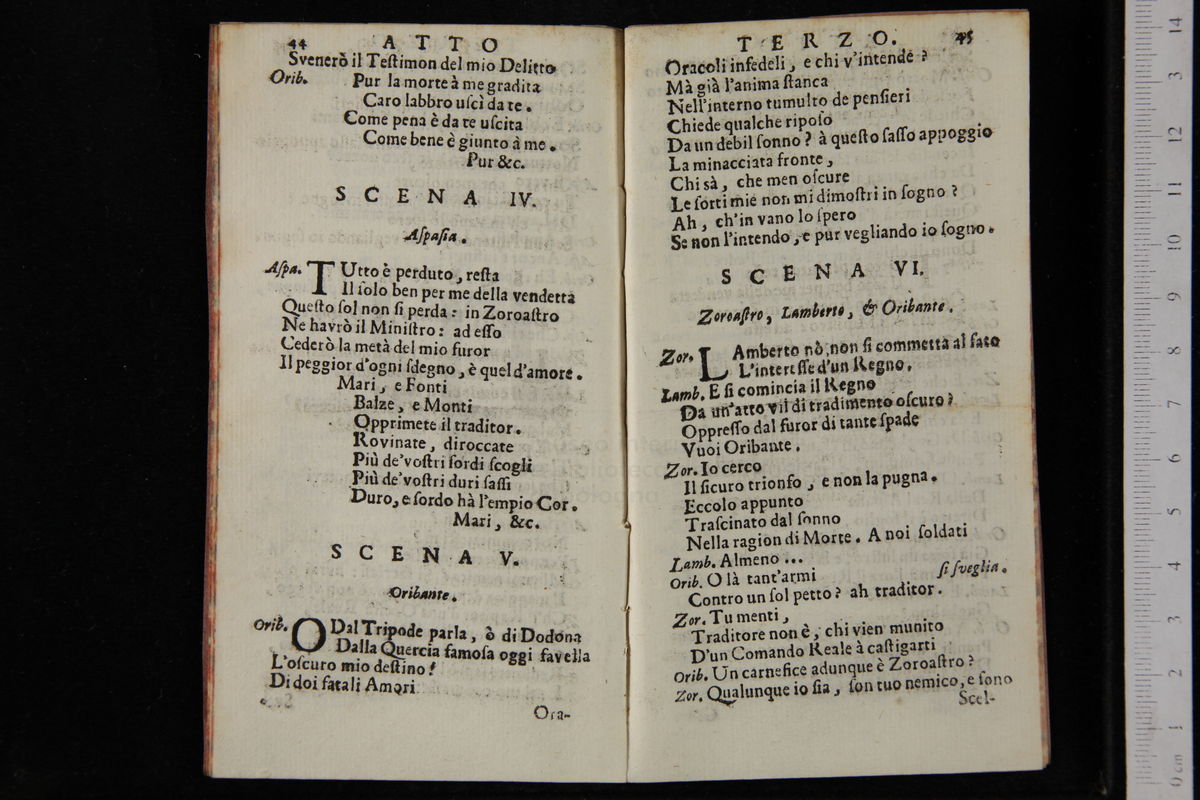 44 ATTO
Svenerò il Teſtimon del mio Delitto
Orib. Pur la morte à me gradita
Caro labbro uſcì da te.
Come pena è da te uſcita
Come bene è giunto à me.
Pur &c.
SCENA IV.
Aſpaſia.
Aſpa. TUtto è perduto, reſta
Il ſolo ben per me della vendetta
Queſto ſol non ſi perda: in Zoroaſtro
Ne havrò il Miniſtro: ad eſſo
Cederò la metà del mio furor
Il peggior d'ogni ſdegno, è quel d'amore.
Mari, e Fonti
Balze, e Monti
Opprimete il traditor.
Rovinate, diroccate
Più de'voſtri ſordi ſcogli
Più de'voſtri duri ſaſſi
Duro, e ſordo hà l'empio Cor.
Mari, &c.
SCENA V.
Oribante.
Orib. O Dal Tripode parla, ò di Dodona
Dalla Quercia famoſa oggi favella
L'oſcuro mio deſtino!
Di doi fatali Amori
Ora-
TERZO. 45
Oracoli infedeli, e chi v'intende?
Mà già l'anima ſtanca
Nell'interno tumulto de penſieri
Chiede qualche ripoſo
Da un debil ſonno? à queſto ſaſſo appoggio
La minacciata fronte,
Chi sà, che men oſcure
Le ſorti mie non mi dimoſtri in ſogno?
Ah, ch'in vano lo ſpero
Se non l'intendo, e pur vegliando io ſogno.
SCENA VI.
Zoroaſtro, Lamberto, & Oribante.
Zor. LAmberto nò, non ſi commetta al fato
L'intereſſe d'un Regno.
Lamb. E ſi comincia il Regno
Da un'atto vil di tradimento oſcuro?
Oppreſſo dal furor di tante ſpade
Vuoi Oribante.
Zor. Io cerco
Il ſicuro trionfo, e non la pugna.
Eccolo appunto
Traſcinato dal ſonno
Nella ragion di Morte. A noi ſoldati
Lamb. Almeno ...
Orib. O là tant'armi ſi ſveglia.
Contro un ſol petto? ah traditor.
Zor. Tu menti,
Traditore non è, chi vien munito
D'un Comando Reale à caſtigarti
Orib. Un carnefice adunque è Zoroaſtro?
Zor. Qualunque io ſia, ſon tuo nemico, e ſono
Scel-
0 cm 1 2 3 4 5 6 7 8 9 10 11 12 3 14